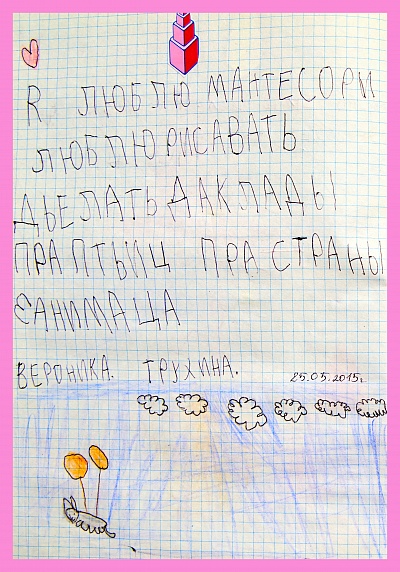 R ЛЮБЛЮ МАНТЕСОРИ
ЛЮБЛЮ РИСАВАТЬ
ДЬЕЛАТЬ ДАКЛАДЫ
ПРА ПТЫЦ ПРА СТРАНЫ
ЗАНИМАЦА
ВЕРОНИКА. ТРУХИНА.
25.05.2015г.